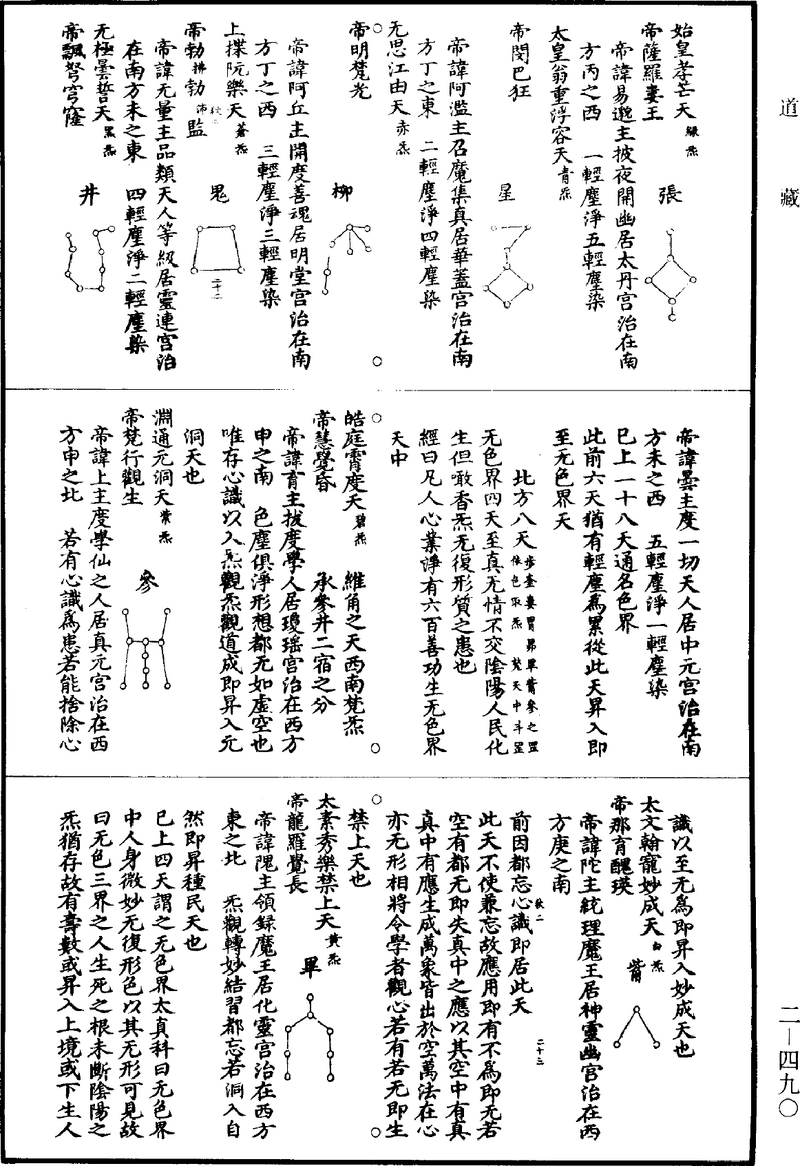 道藏
始皇孝芒天 綠炁
帝隆羅妻王
張
帝諱易邈主披夜開幽居太丹宮治在南
方丙之西 一輕塵淨五輕塵染
太皇翁重浮容天 青炁
帝閔巴狂
星
帝諱阿濫主召魔集真居華蓋宮治在南
方丁之東 二輕塵淨四輕塵染
无思江由天 赤炁
帝明梵光
柳
帝諱阿丘主開度善魂居明堂宮治在南
方丁之西 三輕塵淨三輕塵染
上揲阮樂天 蒼炁
帝勃拂勃沛監
鬼
二十二
帝諱无量主品類天人等級居靈連宮治
在南方未之東 四輕塵淨二輕塵染
无極曇誓天 黑炁
帝飄弩穹窿
井
帝諱曇主度一切天人居中元宮治在南
方未之西 五輕塵淨一輕塵染
巳上一十八天通名色界
此前六天猶有輕塵為累從此天昇入即
至无色界天
北方八天
无色界四天至真无情不交陰陽人民化
生但噉香炁无復形質之患也
經曰凡人心業淨有六百善功生无色界
天中
皓庭霄度天 碧炁 維角之天西南梵炁
帝慧覺昏 承參井二宿之分
帝諱育主拔度學人居瓊瑤宮治在西方
申之南 色塵俱淨形想都无如虛空也
唯存心識以入炁觀炁觀道成即昇入元
洞天也
淵通元洞天 紫炁
帝梵行觀生
參
帝諱上主度學仙之人居真元宮治在西
方申之北 若有心識為患若能捨除心
識以至无為即昇入妙成天也
太文翰寵妙成天 白炁
帝那育醜瑛
觜
帝諱陀主統理魔王居神靈幽宮治在西
方庚之南
前因都忘心識即居此天
二十三
此天不使兼忘故應用即有不為即无若
空有都无即失真中之應以其空中有真
真中有應生成萬象皆出於空萬法在心
亦无形相將令學者觀心若有若无即生
禁上天也
太素秀樂禁上天 黃炁
帝龍羅覺長
畢
帝諱隗主領錄魔王居化靈宮治在西方
東之北 炁觀轉妙結習都忘若洞入自
然即昇種民天也
巳上四天謂之无色界太真科曰无色界
中人身微妙无復形色以其无形可見故
曰无色三界之人生死之根未斷陰陽之
炁猶存故有壽數或昇入上境或下生人
二—四九〇